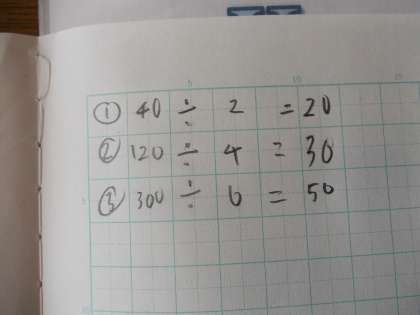 ① 40 ÷ 2 = 20
② 120 ÷ 4 = 30
③ 300 ÷ 6 = 50